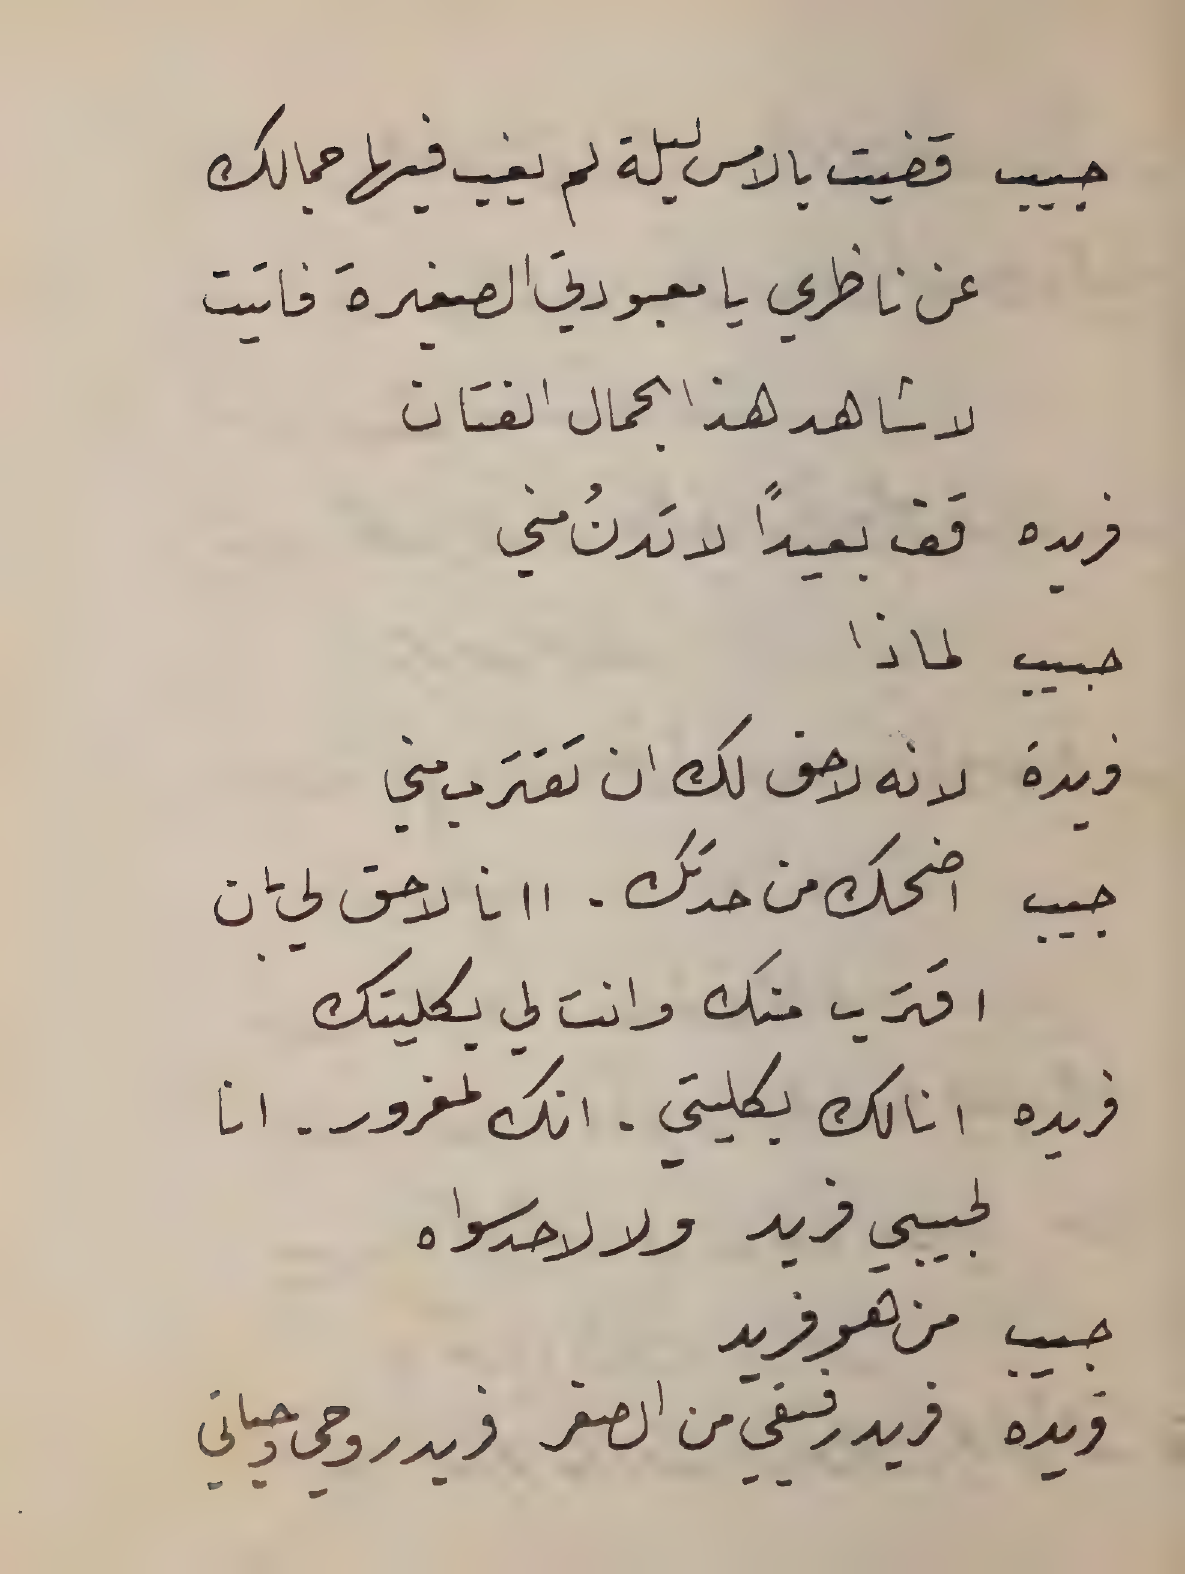 حبيب قضيت بالامس ليلة لم يغب فيها جمالك
عن ناظري يا معبودتي الصغيرة فاتيت
لاشاهد هذا الجمال الفتان
فريده قف بعيداً لا تدنُ مني
حبيب لماذا
فريدة لانه لا حق لك ان تقترب مني
حبيب اضحك من حدتك . اانا لا حق لي بأن
اقترب منك وانت لي بكليتك
فريده انا لك بكليتي . انك لمغرور . انا
لحبيبي فريد ولا لاحد سواه
حبيب من هو فريد
فريده فريد رفيقي من الصغر فريد روحي وحياتي